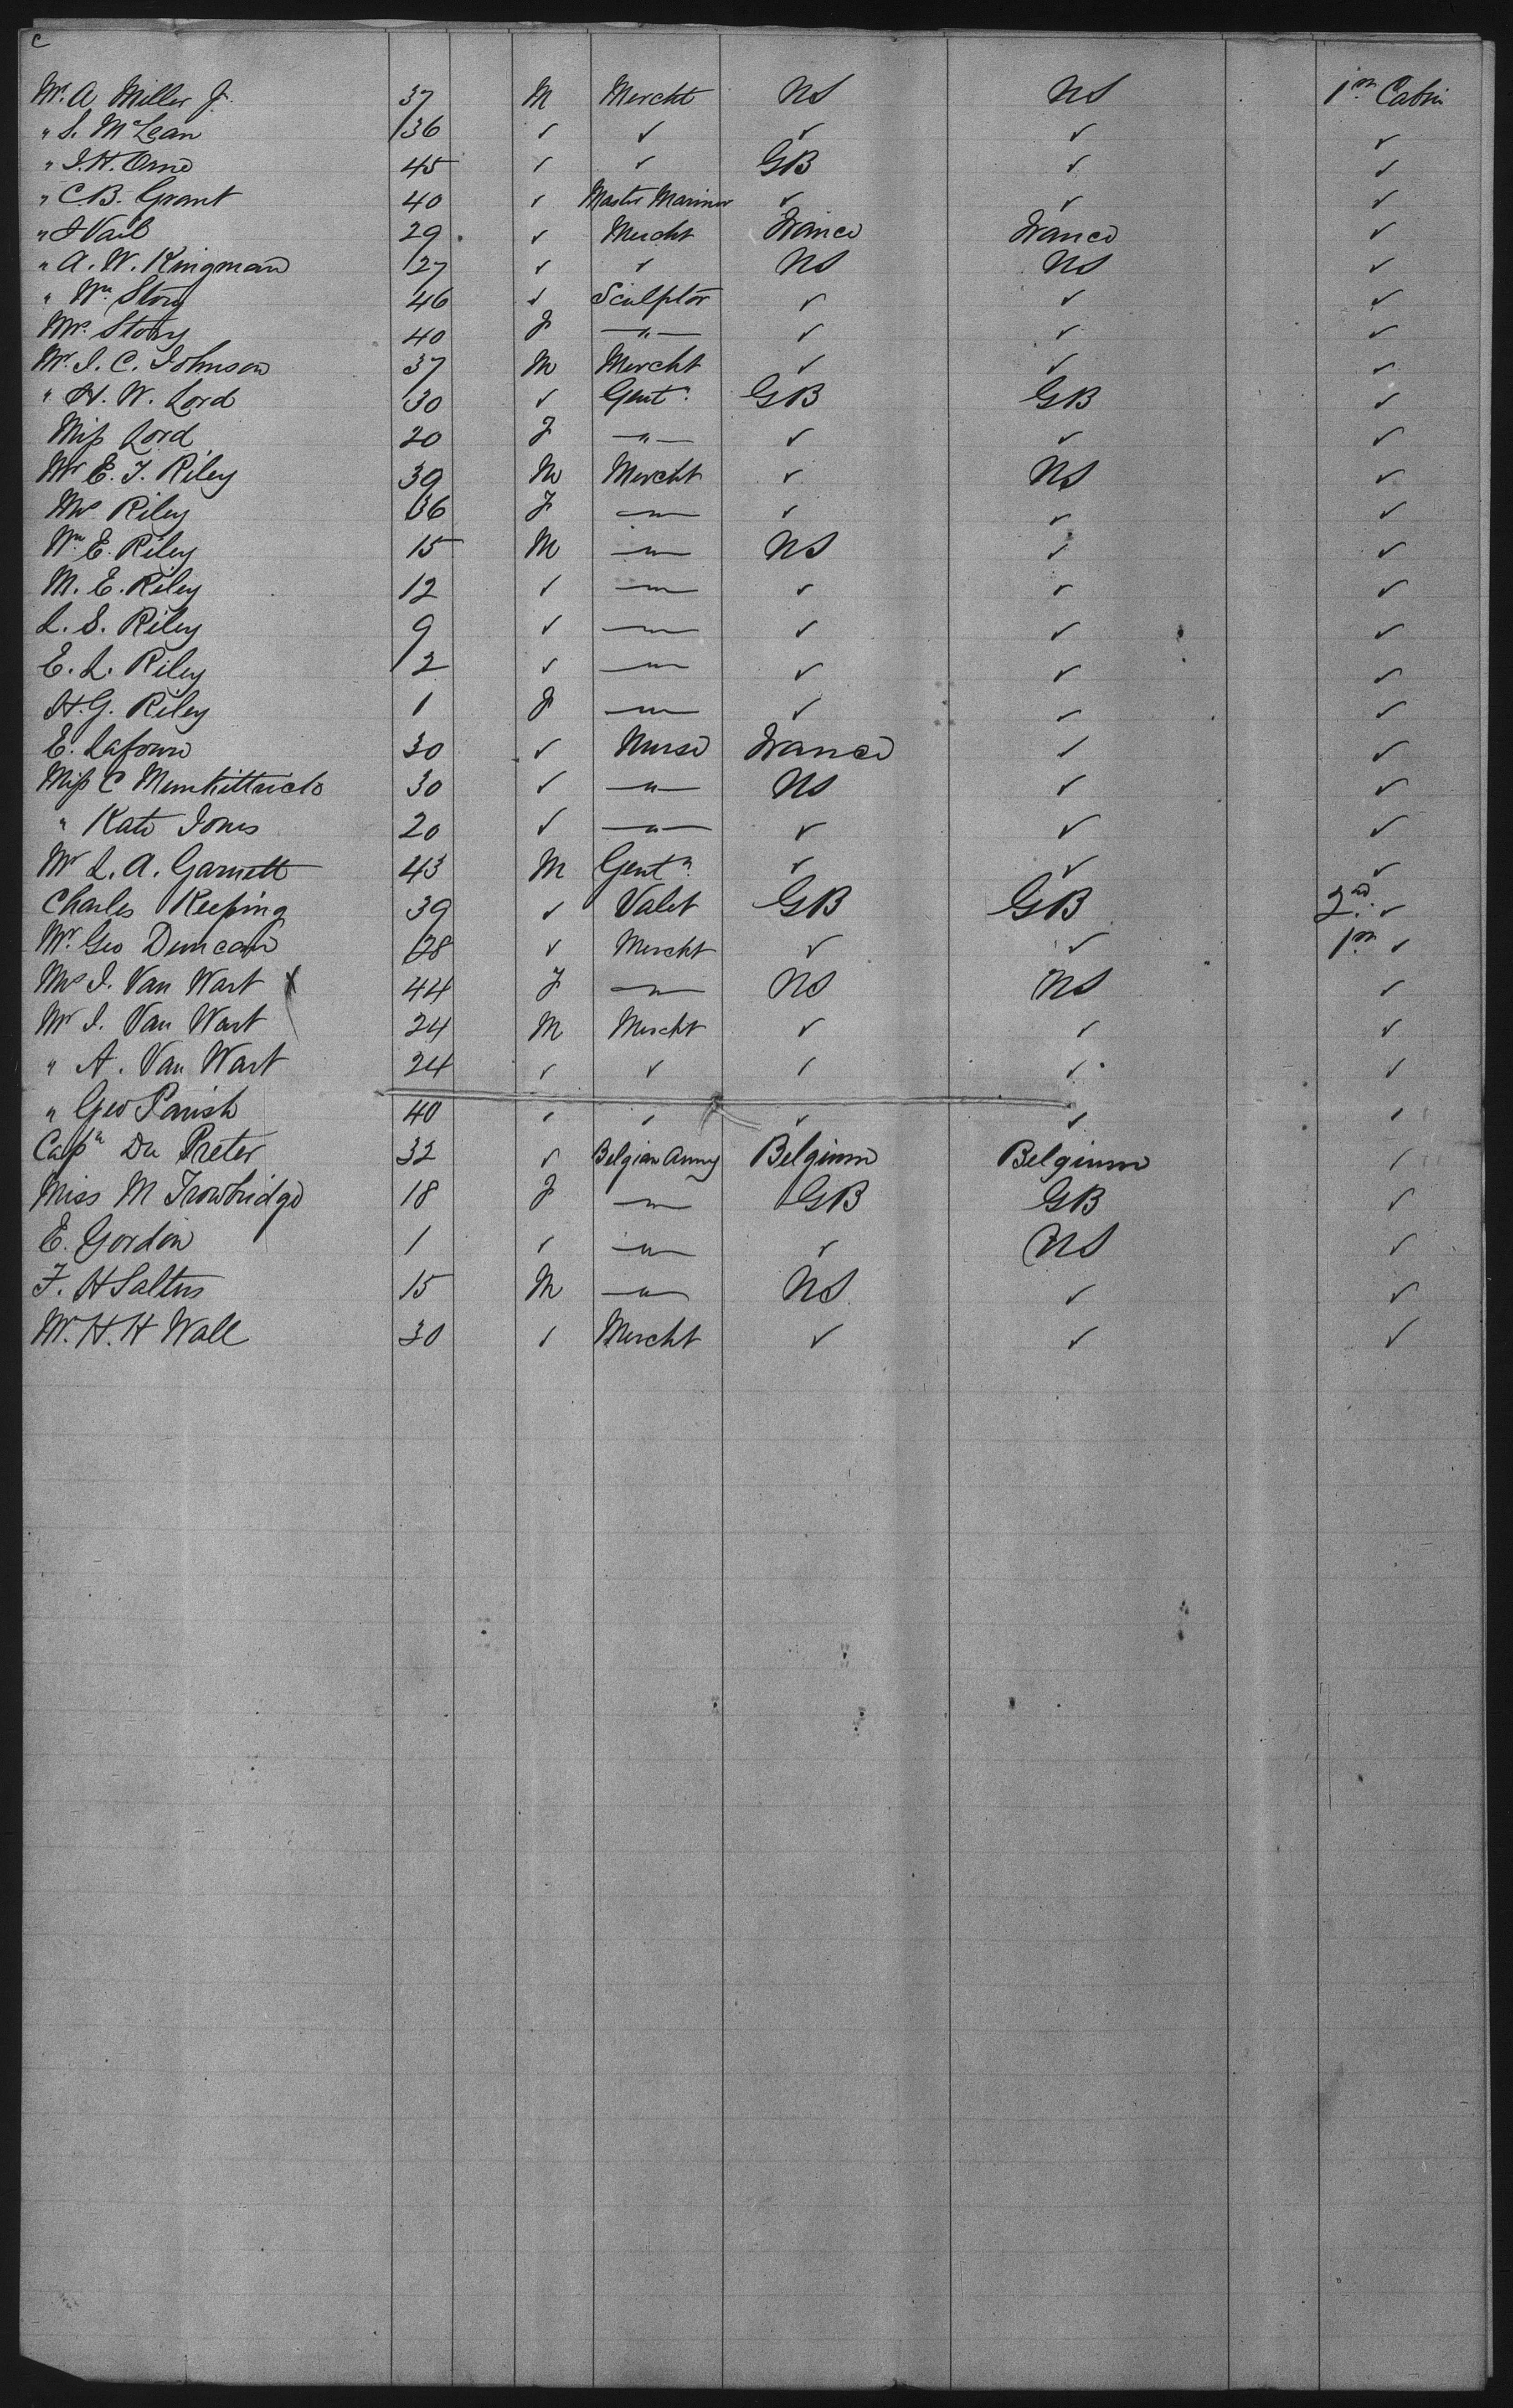 C
Mr. A Miller J. 37 M Mercht US US 1st Cabin
" S. McLean 36 ✓ ✓ ✓ ✓ ✓
" J. H. Orne 45 ✓ ✓ GB ✓ ✓
" C B. Grant 40 ✓ Master Mariner ✓ ✓ ✓
" J Vail 29 ✓ Mercht France France ✓
" A. W. Kingman 27 ✓ ✓ US US ✓
" Wm Story 46 ✓ Sculptor ✓ ✓ ✓
Mrs. Story 40 F — " — ✓ ✓ ✓
Mr. J. C. Johnson 37 M Mercht ✓ ✓ ✓
" H. W. Lord 30 ✓ Gentn. GB GB ✓
Miss Lord 20 F — " — ✓ ✓ ✓
Mr E. J. Riley 39 M Mercht ✓ US ✓
Mrs Riley 36 F — " — ✓ ✓ ✓
Wm E. Riley 15 M — " — US ✓ ✓
M. E. Riley 12 ✓ — " — ✓ ✓ ✓
L. S. Riley 9 ✓ — " — ✓ ✓ ✓
E. L. Riley 2 ✓ — " — ✓ ✓ ✓
H. G. Riley 1 F — " — ✓ ✓ ✓
E. 30 ✓ Nurse France ✓ ✓
Miss C Munkittrick 30 ✓ — " — US ✓ ✓
" Kate Jones 20 ✓ — " — ✓ ✓ ✓
Mr L. A. Garnett 43 M Gentn. ✓ ✓ ✓
Charles Keeping 39 ✓ Valet GB GB 2nd. ✓
Mr. Geo Duncan 28 ✓ Mercht ✓ ✓ 1st ✓
Mrs J. Van Wart X 44 F — " — US US ✓
Mr J. Van Wart 24 M Mercht ✓ ✓ ✓
" A. Van Wart 24 ✓ ✓ ✓ ✓ ✓
" Geo Parish 40 ✓ ✓ ✓ ✓ ✓
Capn De Preter 32 ✓ Belgian Army Belgium Belgium ✓
Miss M Trowbridge 18 F — " — GB GB ✓
E. Gordon 1 ✓ — " — ✓ US ✓
F. H Saltus 15 M — " — US ✓ ✓
Mr. H. H Wall 30 ✓ Mercht ✓ ✓ ✓